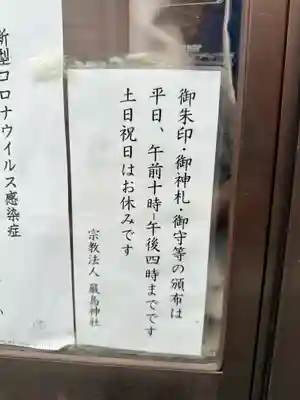 御朱印・御神札・御守等の頒布は
平日、午前十時-午後四時まてです
土日祝日はお休みです
宗教法人 厳島神社
新型コロナウイルス感染症